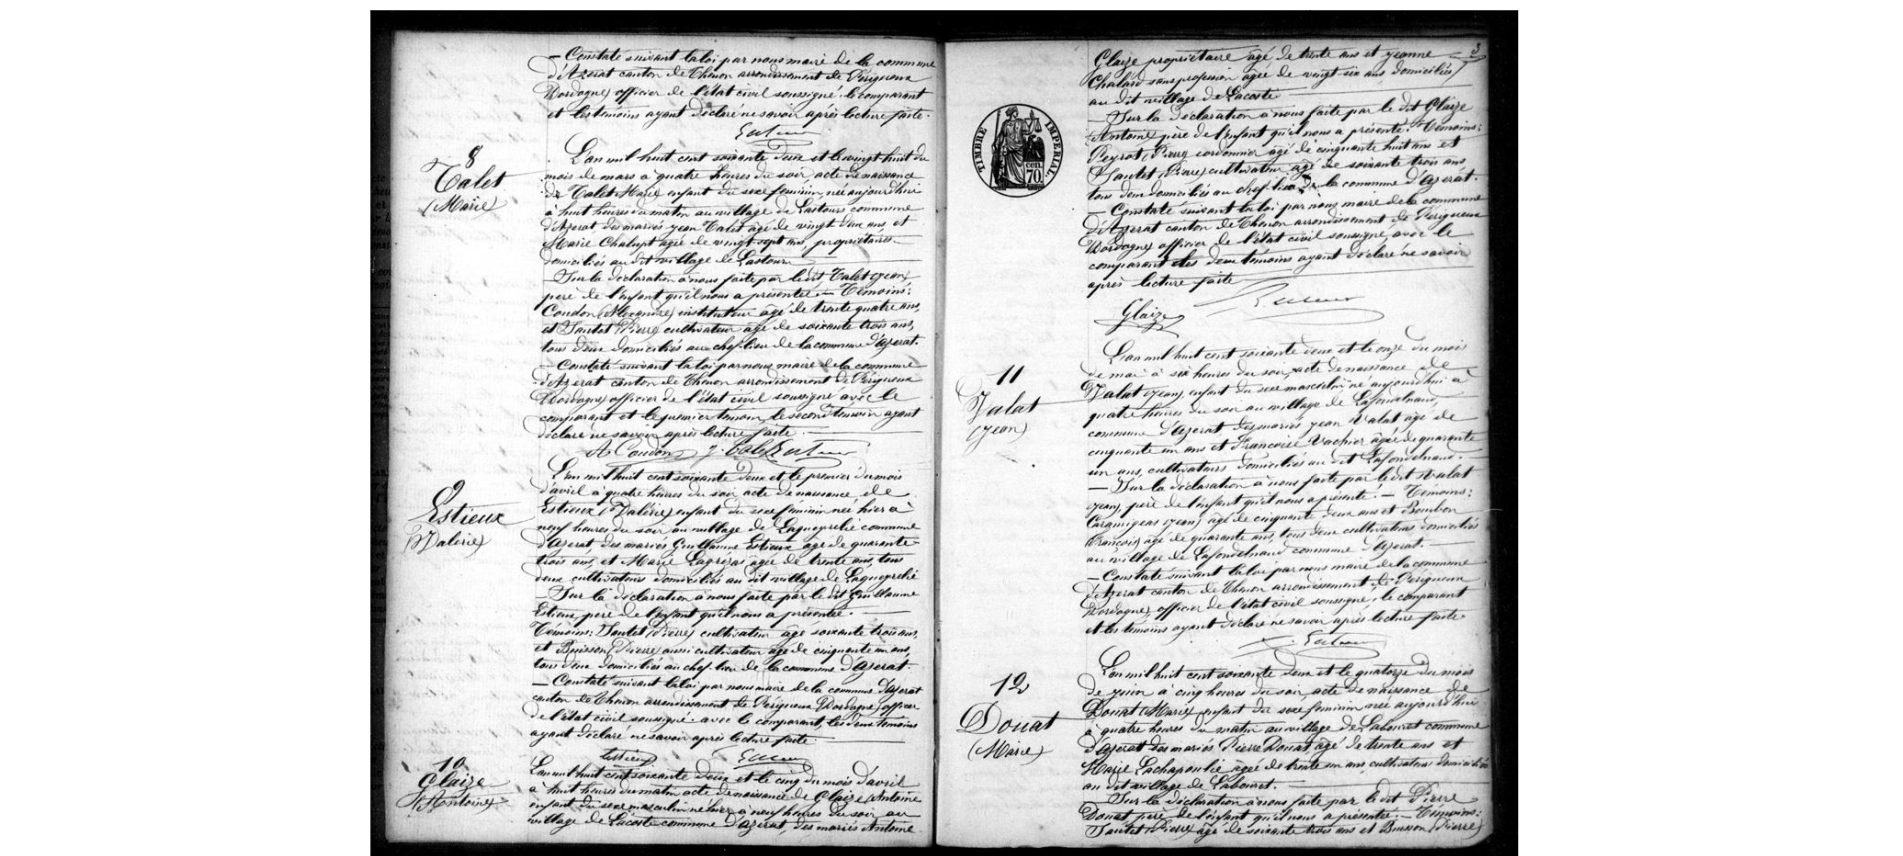 — Constaté suivant la loi par nous maire de la commune
d'Azerat canton de Thenon arrondissement de Périgueux
(Dordogne) officier de l'état civil soussigné le comparant
et les témoins ayant déclaré ne savoir après lecture faite.
8
Talet
(Marie)
L'an mil huit cent soixante deux et le vingt huit du
mois de mars à quatre heures du soir, acte de naissance
de Talet Marie enfant du sexe féminin, née aujourd'hui
à huit heures du matin au village de Lastours commune
d'Azerat des mariés Jean Talet âgé de vingt deux ans et
Marie Chalupt agée de vingt sept ans, propriétaires
domiciliés au dit village de Lastours
— Sur la déclaration à nous faite par le dit Talet Jean
père de l'enfant qu'il nous a présenter — Témoins:
Coudon instituteur âgé de trente quatre ans,
et Sautet (Pierre) cultivateur âgé de soixante trois ans,
tous deux domiciliés au chef-lieu de la commune d'Azerat.
— Constaté suivant la loi par nous maire de la commune
d'Azerat canton de Thenon arrondissement de Périgueux
(Dordogne) officier de l'état civil soussigné avec le
comparant et le premier témoin, le second témoin ayant
déclaré ne savoir après lecture faite.
A Coudon J. Talet
9
Estieux
(Valérie)
L'an mil huit cent soixante deux et le premier du mois
d'avril à quatre heures du soir, acte de naissance de
Estieux (Valérie) enfant du sexe féminin née hier à
neuf heures du soir au village de Laqueyrelie commune
d'Azerat des mariés Guillaume Estieux âgé de quarante
trois ans, et Marie agée de trente ans, tous
deux cultivateurs domiciliés au dit village de Laqueyrelie
— Sur la déclaration à nous faite par le dit Guillaume
Estieux père de l'enfant qu'il nous a présentée.
Témoins: Sautet (Pierre) cultivateur âgé soixante trois ans,
et Buisson (Pierre) aussi cultivateur âgé de cinquante un ans,
tous deux domiciliés au chef-lieu de la commune d'Azerat
— Constaté suivant la loi par nous maire de la commune d'Azerat
canton de Thenon arrondissement de Périgueux (Dordogne) officier
de l'état civil soussigné avec le comparant, les deux témoins
ayant déclaré ne savoir après lecture faite
Estieux
10
Glaize
(Antoine)
L'an mil huit cent soixante deux et le cinq du mois d'avril
à huit heures du matin acte de naissance de Glaize Antoine
enfant du sexe masculin né hier à neuf heures du soir au
village de Lacoste commune d'Azerat, des mariés Antoine
3
Glaize propriétaire âgé de trente ans et Jeanne
Chalard sans profession agée de vingt six ans domiciliés
au dit village de Lacoste
— Sur la déclaration à nous faite par le dit Glaize
Antoine père de l'enfant qu'il nous a présenté. Témoins:
Peyrat (Pierre) cordonnier âgé de cinquante huit ans et
Sautet (Pierre) cultivateur âgé de soixante trois ans
tous deux domiciliés au chef-lieu de la commune d'Azerat.
— Constaté suivant la loi par nous maire de la commune
d'Azerat canton de Thenon arrondissement de Périgueux
(Dordogne) officier de l'état civil soussigné avec le
comparant et les deux témoins ayant déclaré ne savoir
après lecture faite
Glaize
TIMBRE IMPERIAL
cen.
70.
11
Valat
(Jean)
L'an mil huit cent soixante deux et le onze du mois
de mai à six heures du soir, acte de naissance de
Valat (Jean) enfant du sexe masculin né aujourd'hui à
quatre heures du soir au village de
commune d'Azerat des mariés Jean Valat âgé de
cinquante un ans et Françoise Vachier âgée de quarante
un ans, cultivateurs domiciliés au dit
— Sur la déclaration à nous faite par le dit Valat
(Jean) père de l'enfant qu'il nous a présenté. — Témoins:
(Jean) âgé de cinquante deux ans et Bourbon
(François) âgé de quarante ans, tous deux cultivateurs domiciliés
au village de commune d'Azerat.
— Constaté suivant la loi par nous maire de la commune
d'Azerat canton de Thenon arrondissement de Périgueux
(Dordogne) officier de l'état civil soussigné, le comparant
et les témoins ayant déclaré ne savoir après lecture faite
12
Douat
(Marie)
L'an mil huit cent soixante deux et le quatorze du mois
de juin à cinq heures du soir, acte de naissance de
Douat (Marie) enfant du sexe féminin née aujourd'hui
à quatre heures du matin au village de Labouret commune
d'Azerat des mariés Pierre Douat, âgé de trente ans et
Marie Lachapoulie âgée de trente un ans cultivateurs domiciliés
au dit village de Labouret.
— Sur la déclaration à nous faite par le dit Pierre
Douat père de l'enfant qu'il nous a présentée. — Témoins:
Sautet (Pierre) âgé de soixante trois ans et Buisson (Pierre)